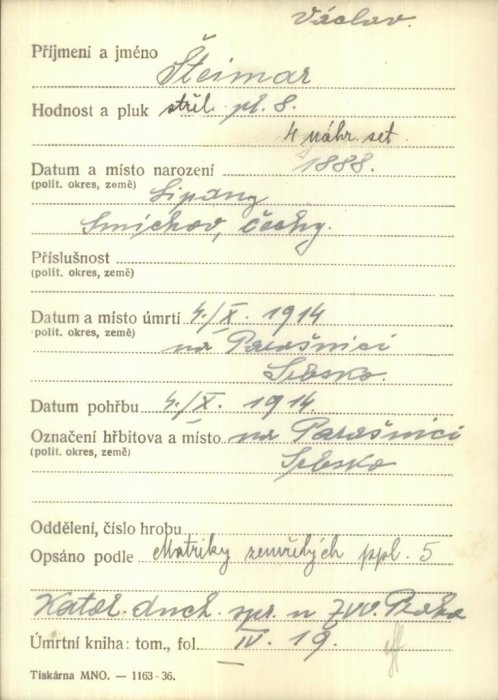 Václav.
Příjmení a jméno Šteimar
Hodnost a pluk střel. pl. 8.
4 náhr. set.
Datum a místo narození 1888.
(polit. okres, země) Lipany
Smíchov, Čechy.
Příslušnost
(polit. okres, země)
Datum a místo úmrtí 4./X. 1914
(polit. okres, země) na Parašnici
Srbsko.
Datum pohřbu 4./X. 1914.
Označení hřbitova a místo na Parašnici
(polit. okres, země) Srbsko
Oddělení, číslo hrobu
Opsáno podle Matriky zemřelých ppl. 5
Katol. duch. spr. u ZVV. Praha
Úmrtní kniha: tom., fol. IV. 19.
Tiskárna MNO. — 1163-36.